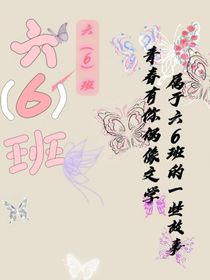 六
(6)
班
六（6）班
属于六6班的一些故事
青春有你偶像之学